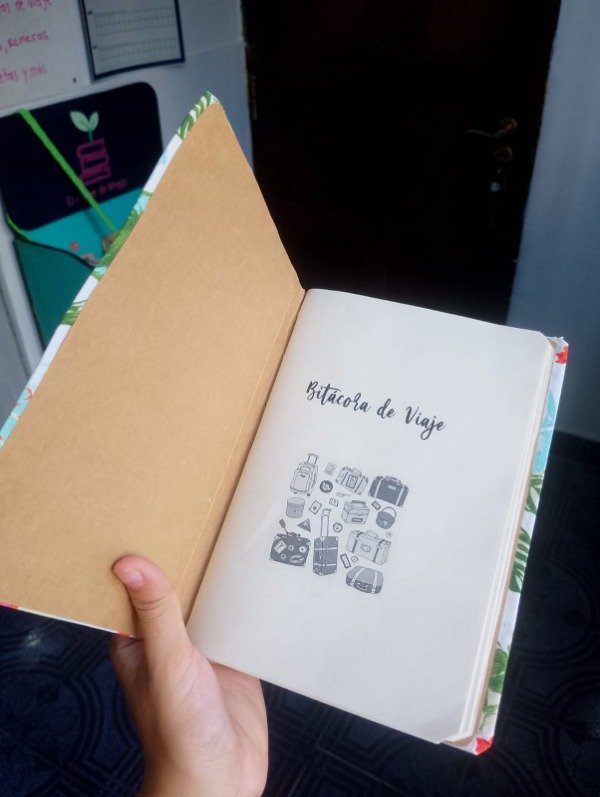 as de viaje
, remeras
etas y más
Bitácora de Viaje